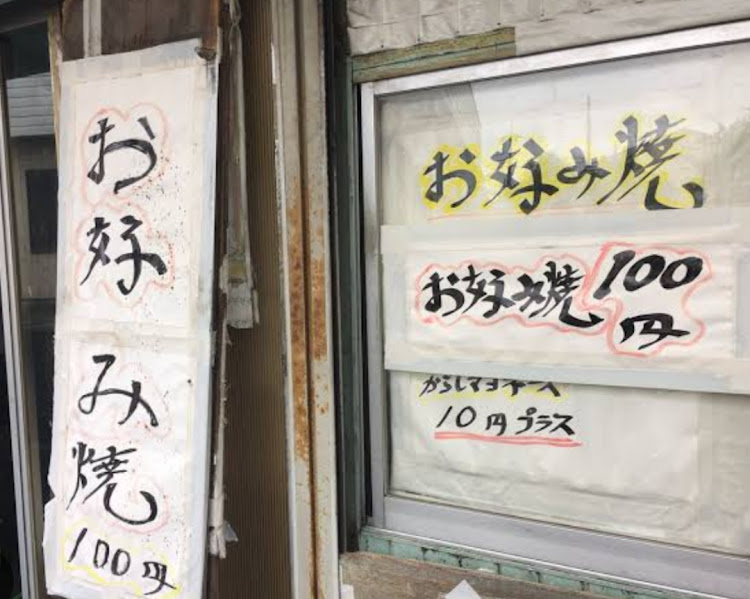 お好み焼
100円
お好み焼
お好み焼 100円
からしマヨネーズ
10円プラス